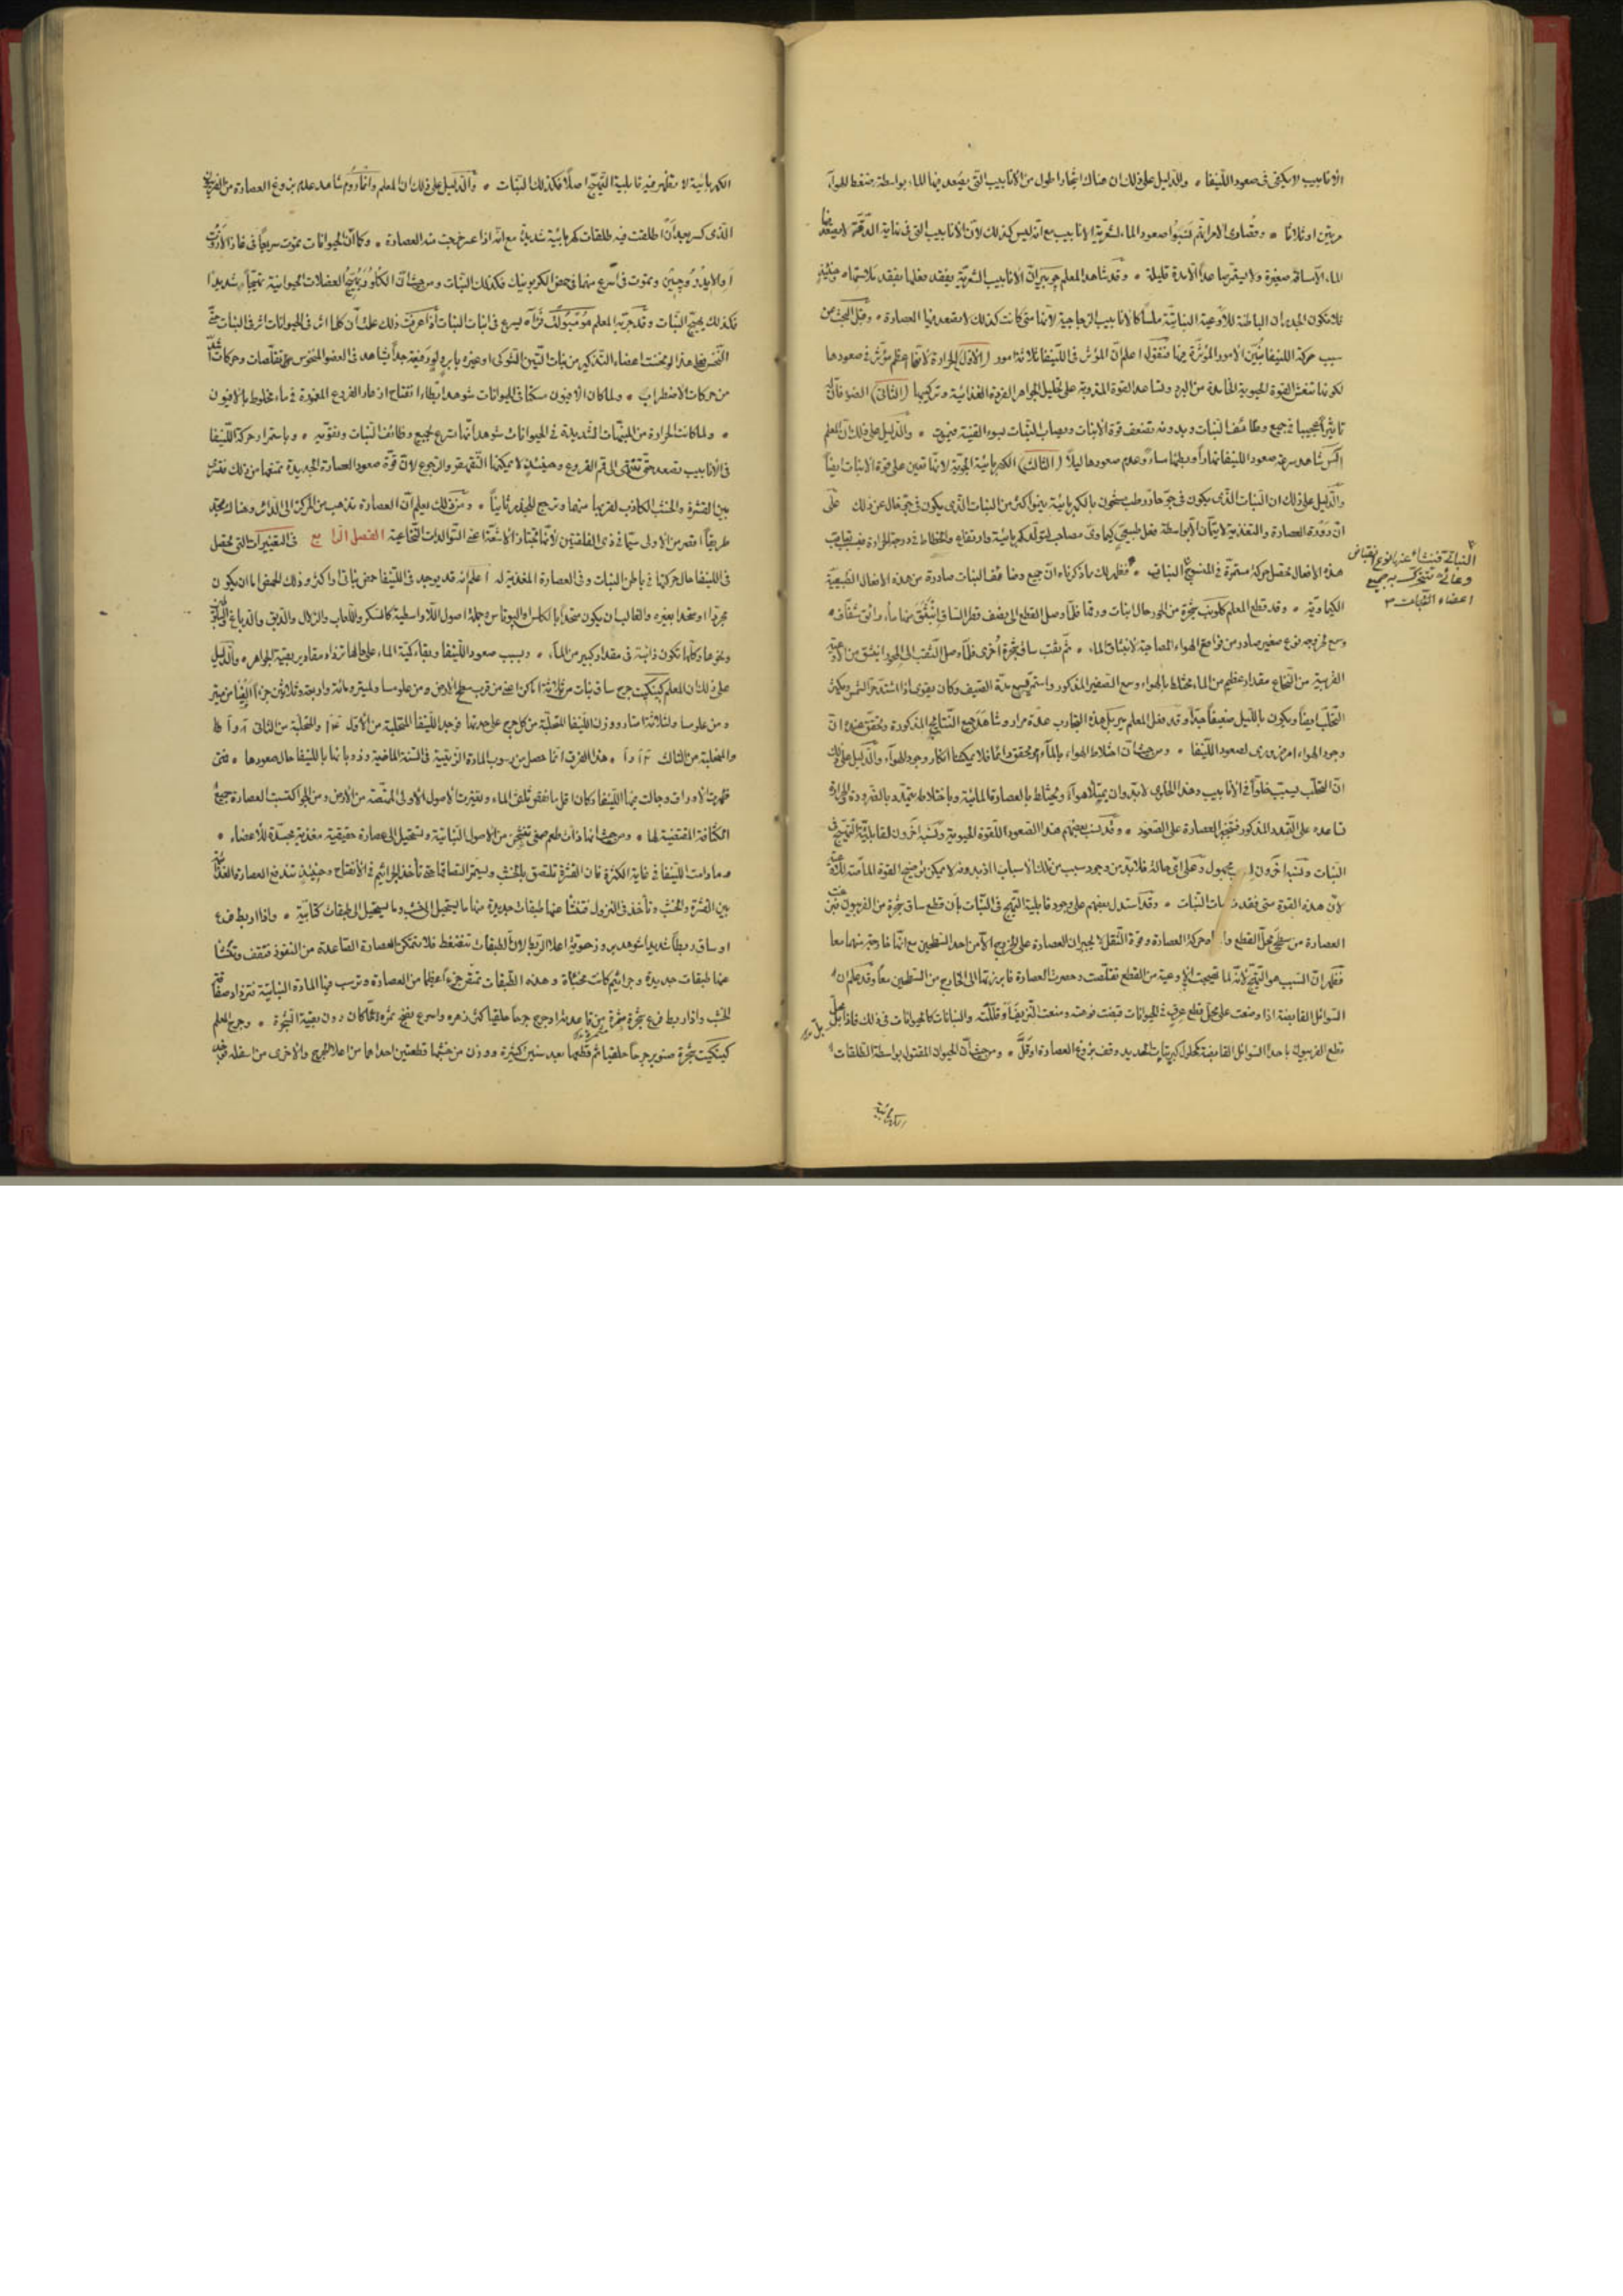 الانابيب لا يكفى فى صعود اللّينفا • والدليل على ذلك ان هناك اشجارا اطول من الانابيب التى يصعد فيها الماء بواسطة ضغط الهواء
مرتين او ثلاثا • وقصارى الامر انهم نسبوا صعود الماء لشعرية الانابيب مع انه ليس كذلك لان الانابيب التى فى غاية الدقة لا يصعد فيها
الماء الا مسافة صغيرة ولا يستمر صاعدا الا مدة قليلة • وقد شاهد المعلم ان الانابيب الشعرية يفقد فعلها بفقد تلاستها وحينئذ
فلا تكون الجدران الباطنة للاوعية النباتية ملسا كالانابيب الزجاجية لانها متى كانت كذلك لا يصعد فيها العصارة • وقبل البحث عن
سبب حركة اللينفا نبين الامور المؤثرة فيها فنقول اعلم ان المؤثر فى اللينفا ثلاثة امور (الاول) الحرارة لانها اعظم مؤثر فى صعودها
لكونها تنعش القوة الحيوية الخامدة من البرد وتساعد القوة المقوية على تحليل الجواهر الفردة الغذائية وتركيبها (الثانى) الضوء فان له
تاثيرا عجيبا فى جميع وظائف النبات وبدونه تضعف قوة الانبات ويصاب النبات بسوء القنية فيموت • والدليل على ذلك ان المعلم
شاهد سرعة صعود اللينفا نهارا وبطئها مساء وعدم صعودها ليلا (الثالث) الكهربائية الجوية لانها تعين على قوة الانبات ايضا
والدليل على ذلك ان النبات الذى يكون فى جو حار رطب مشحون بالكهربائية ينمو اكثر من النبات الذى يكون فى جو خال عن ذلك على
ان دورة العصارة والتغذية لا يتمان الا بواسطة فعل طبيعى كيماوى مصاحب لتولد كهربائية وارتفاع وانحطاط فى درجة الحرارة فبتعاقب
هذه الافعال تحصل حركة مستمرة فى المنسوج النباتى • فظهر لك مما ذكرناه ان جميع وظائف النبات صادرة من هذه الافعال الطبيعية
النباتى فينشأ عنه نوع انقباض
وعائى تتحرك به جميع
اعضاء النبات
الكيماوية • وقد قطع المعلم شجرة من الحور حال انبات ورقها فلما وصل القطع الى نصف قطر الساق انبثق منها ماء رائق شفاف
وسمع لخروجه نوع صفير صادر من فواقع الهواء المصاحبة لانبثاق الماء • ثم ثقب ساق شجرة اخرى فلما وصل الثقب الى المحور انبثق من الاوعية
القريبة من النخاع مقدار عظيم من الماء مختلط بالهواء وسمع الصفير المذكور واستمر جميع مدة الصيف وكان يقوى اذا اشتد حر الشمس ويكثر
التحلب ايضا ويكون بالليل ضعيفا جدا وقد فعل المعلم هذه التجارب عدة مرار وشاهد جميع النتائج المذكورة وتحقق عنده ان
وجود الهواء امر ضرورى لصعود اللينفا • ومن حيث ان اختلاط الهواء بالماء محقق دائما فلا يمكننا انكار وجود الهواء والدليل على ذلك
ان التحلب يسبب خلوا فى الانابيب وهذا الخلو لا بد وان يمتلأ هواء ويختلط بالعصارة المائية وباختلاطه يتمدد بالضرورة لان الحرارة
تساعده على التمدد المذكور فتجبر العصارة على الصعود • وقد نسب بعضهم هذا الصعود للقوة الحيوية ونسبه آخرون لقابلية التهيج فى
النبات ونسبه آخرون مجهول وعلى اى حالة فلا بد من وجود سبب من تلك الاسباب اذ بدونه لا يمكن توضيح القوة الماصة
لان هذه القوة متى فقدت مات النبات • وقد استدل بعضهم على وجود قابلية التهيج فى النبات بان قطع ساق شجرة من الفربيون
العصارة من سطحى محل القطع حركة العصارة وقوة الثقل لا يجبران العصارة على الخروج الا من احد السطحين مع انها خارجة منهما معا
فظهر ان السبب هو التهيج لانه لما تهيجت الاوعية من القطع تقلصت وحصرت العصارة فابرزتها الى الخارج من السطحين معا وقد علم ان
السوائل القابضة اذا وضعت على محل قطع عرق فى الحيوانات قبضت فوهته ومنعت النزيف او قللته والنباتات كالحيوانات فى ذلك فاذا بل محل
قطع الفربيون باحد السوائل القابضة كمحلول كبريتات الحديد وقف بزوغ العصارة او قل • ومن حيث ان الحيوان المقتول بواسطة الطلقات
الكهربائية
الكهربائية لا تظهر فيه قابلية التهيج اصلا فكذلك النبات • والدليل على ذلك ان المعلم شاهد عدم بزوغ العصارة من الفربيون
الذى كسر بعد ان اطلقت فيه طلقات كهربائية شديدة مع انه اذا عصر خرجت منه العصارة • وكما ان الحيوانات تموت سريعا فى غاز الازوت
او الايدروجين وتموت فى اسرع منهما فى حمض الكربونيك فكذلك النبات ومن حيث ان الكلور يهيج العضلات الحيوانية تهييجا شديدا
فكذلك يهيج النبات وقد جربه المعلم فرآه يسرع فى انبات النبات اذا عرفت ذلك علمت ان كلما اثر فى الحيوانات اثر فى النبات حتى
النخس فعلى هذا لو نخست اعضاء التذكير من نبات التين الشوكى او غيره بابرة ولو رفيعة جدا يشاهد فى العضو المنخوس تقلصات وحركات اشد
من حركات الاضطراب • ولما كان الافيون مسكنا فى الحيوانات شوهد ابطاء انفتاح ازهار الفروع المغموسة فى ماء مخلوط بالافيون
• ولما كانت الحرارة من المهيجات الشديدة فى الحيوانات شوهد انها تسرع بجميع وظائف النبات وتقويه • وباستمرار حركة اللينفا
فى الانابيب تصعد حتى تنتهى الى قمم الفروع وحينئذ لا يمكنها التقهقر والرجوع لان قوة صعود العصارة الجديدة تمنعها من ذلك فتمر
بين القشرة والخشب الكاذب لقربها منها وترجع للجذر ثانيا • ومن ذلك يعلم ان العصارة تذهب من المركز الى الدائر وهناك تجد
طريقا اقصر من الاولى سيما فى ذى الفلقتين لانها تجتاز الاشعة اعنى التولدات النخاعية الفصل الرابع فى التغييرات التى تحصل
فى اللينفا حال حركتها فى باطن النبات وفى العصارة المغذية له اعلم انه قد يوجد فى اللينفا حمض نباتى او اكثر وذلك الحمض اما ان يكون
مجردا او متحدا بغيره والغالب ان يكون متحدا بالكلس او البوتاس وجملة اصول اللاواسطية كالسكر واللعاب والزلال والدبق والدباغ
ونحوها وكلها تكون ذائبة فى مقدار كبير من الماء • وبسبب صعود اللينفا وبقاء كمية الماء على حالها تزداد مقادير بقية الجواهر • والدليل
على ذلك ان المعلم جرح ساق نبات من ثلاثة اماكن اعنى من قرب سطح الارض ومن علو مسافة ميتر ومائة واربعة وثلاثين جزءا الفيا من ميتر
ومن علو مسافة ثلاثة امتار ووزن اللينفا المتحلبة من كل جرح على حدتها فوجد اللينفا المتحلبة من الاول والمتحلبة من الثانى
والمتحلبة من الثالث • هذا الفرق انما حصل من رسوب المادة الزيتية فى السنة الماضية وذوبانها باللينفا حال صعودها • فمتى
ظهرت الاوراق وجالت فيها اللينفا وكان اقل ما تفقد ثلثى الماء وتغيرت الاصول الاولى الممتصة من الارض ومن الهواء اكتسبت العصارة جميع
الكثافة المقتضية لها • ومن حيث انها ذات طعم صمغى تنتج من الاصول النباتية وتستحيل الى عصارة حقيقية مغذية مجسدة للاعضاء •
وما دامت اللينفا فى غاية الكثرة فان القشرة تلتصق بالخشب ويستمر التصاقها حتى تأخذ الجراثيم فى الانفتاح وحينئذ تندفع العصارة المغذية
بين القشرة والخشب وتأخذ فى النزول فتنشأ عنها طبقات جديدة منها ما يستحيل الى خشب وما يستحيل الى طبقات كتابية • واذا ربط فرع
او ساق ربطا شديدا شوهد بروز حوية اعلا الربط لان الطبقات تنضغط فلا تتمكن العصارة الصاعدة من النفوذ فتقف وتنشأ
عنها طبقات جديدة وجراثيم كانت مختفية وهذه الطبقات تمتص جزءا عظيما من العصارة وترسب فيها المادة النباتية فتزداد صفاقة
الخشب واذا ربط فرع شجرة مثمرة من قاعدته او جرح جرحا حلقيا كثر زهره واسرع نضج ثمره عما كان دون بقية الشجرة • وجرح المعلم
شجرة صنوبر جرحا حلقيا ثم قطعها بعد سنين كثيرة ووزن من خشبها قطعتين احداهما من اعلا الجرح والاخرى من اسفله فوجد